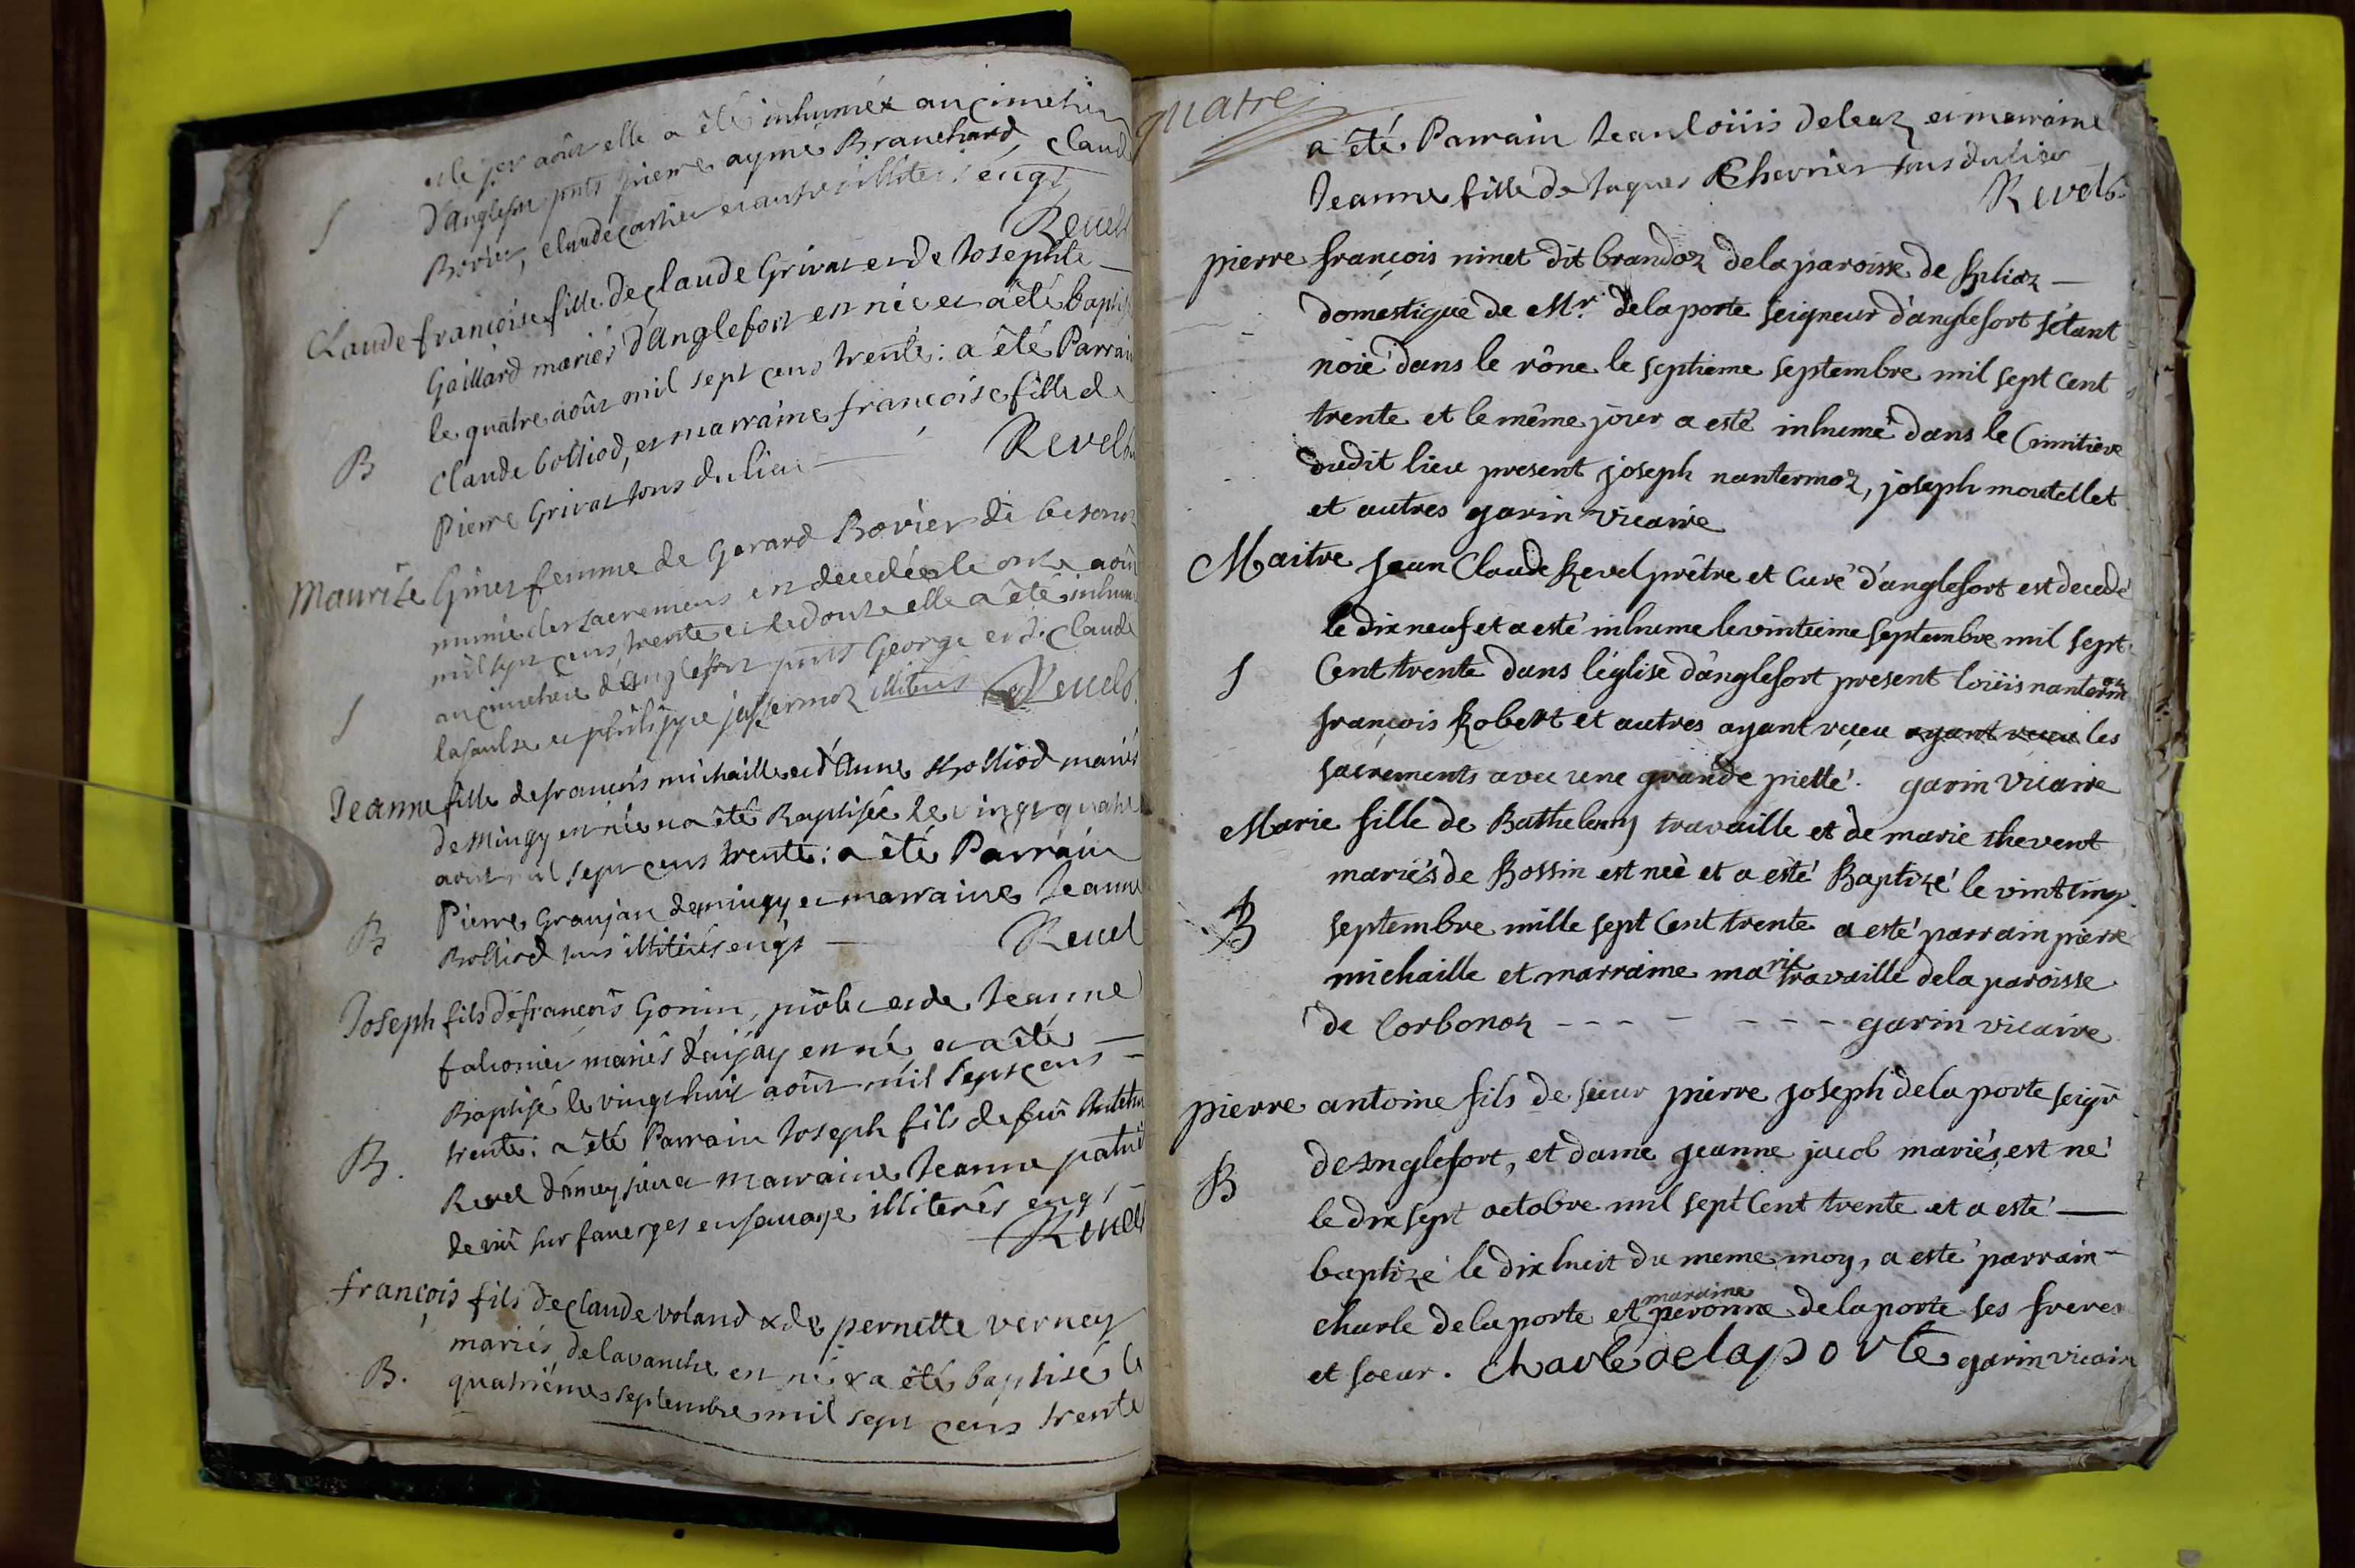 et le per août elle a été inhumée au cimetier
d'anglefort pnts pierre aymé Branchard, Claude
S
Bovier, Claude Cartier et autres illiterés enqs
Revel
Claude françoise fille de Claude Grivat et de Josephte
Gaillard mariés d'Anglefort est née et a été baptisé
le quatre août mil sept cens trente : a été Parrain
B
Claude bolliod, et marraine françoise fille de
Pierre Grivat tous du lieu
Revel
Maurise Ginet femme de Gerard Bovier de
munie des sacremens est decedée le onze août
mil sept cens trente et le douze elle a été inhumée
au cimetiere d'Anglefort pnts George et Claude
S
lasaulse et philippe jassermoz illiterés Revel
Jeanne fille de françois michaille et d'Anne Bolliod mariés
de Mingy est née et a été Baptisée le vingt quatre
aout mil sept cens trente : a été Parrain
Pierre Granjan de mingy et marraine Jeanne
B
Bolliod tous illiterés enqs
Revel
Joseph fils de françois Gonin, et de Jeanne
falconier mariés d'aijay est né et a été
Baptisé le vingt huit août mil sept cens
trente : a été Parrain Joseph fils de feu
B.
Revel et marraine Jeanne
sur faverges en savoye illiterés enqs
Revel
françois fils de Claude voland & de pernette verney
mariés de lavanche est né & a été baptisé le
B.
quatriéme septembre mil sept cens trente
quatre
a été Parrain Jean loüis deleaz et marraine
Jeanne fille de Jaques Chevrier tous du lieu
Revel
pierre françois ninet dit brandoz de la paroisse de
domestique de Mr. de la porte seigneur d'anglefort s'étant
noié dans le rône le septieme septembre mil sept cent
trente et le même jour a esté inhumé dans le Cimitiere
dudit lieu present joseph nantermoz, joseph moutellet
et autres garin vicaire
Maitre Jean Claude Revel prêtre et Curé d'anglefort est decedé
le dix neuf et a esté inhume le vintieme septembre mil sept
S
Cent trente dans l'église d'anglefort present loüis nantermoz
françois Robert et autres ayant reçeu ayant receu les
sacrements avec une grande pietté. garin vicaire
Marie fille de Bathelemy travaille et de marie thevent
mariés de Rossin est neè et a esté Baptizé le vint cinq
B
septembre mille sept cent trente a esté parrain pierre
michaille et marraine marie travaille de la paroisse
de Corbonoz - - - - - - - garin vicaire
pierre antoine fils de sieur pierre joseph de la porte seigr
de Anglefort, et dame jeanne jacob mariés, est né
B
le dix sept octobre mil sept Cent trente et a esté
baptizé le dix huit du meme moy, a esté parrain
charle de la porte et maraine peronne de la porte ses freres
et soeur. Charle de la porte garin vicaire